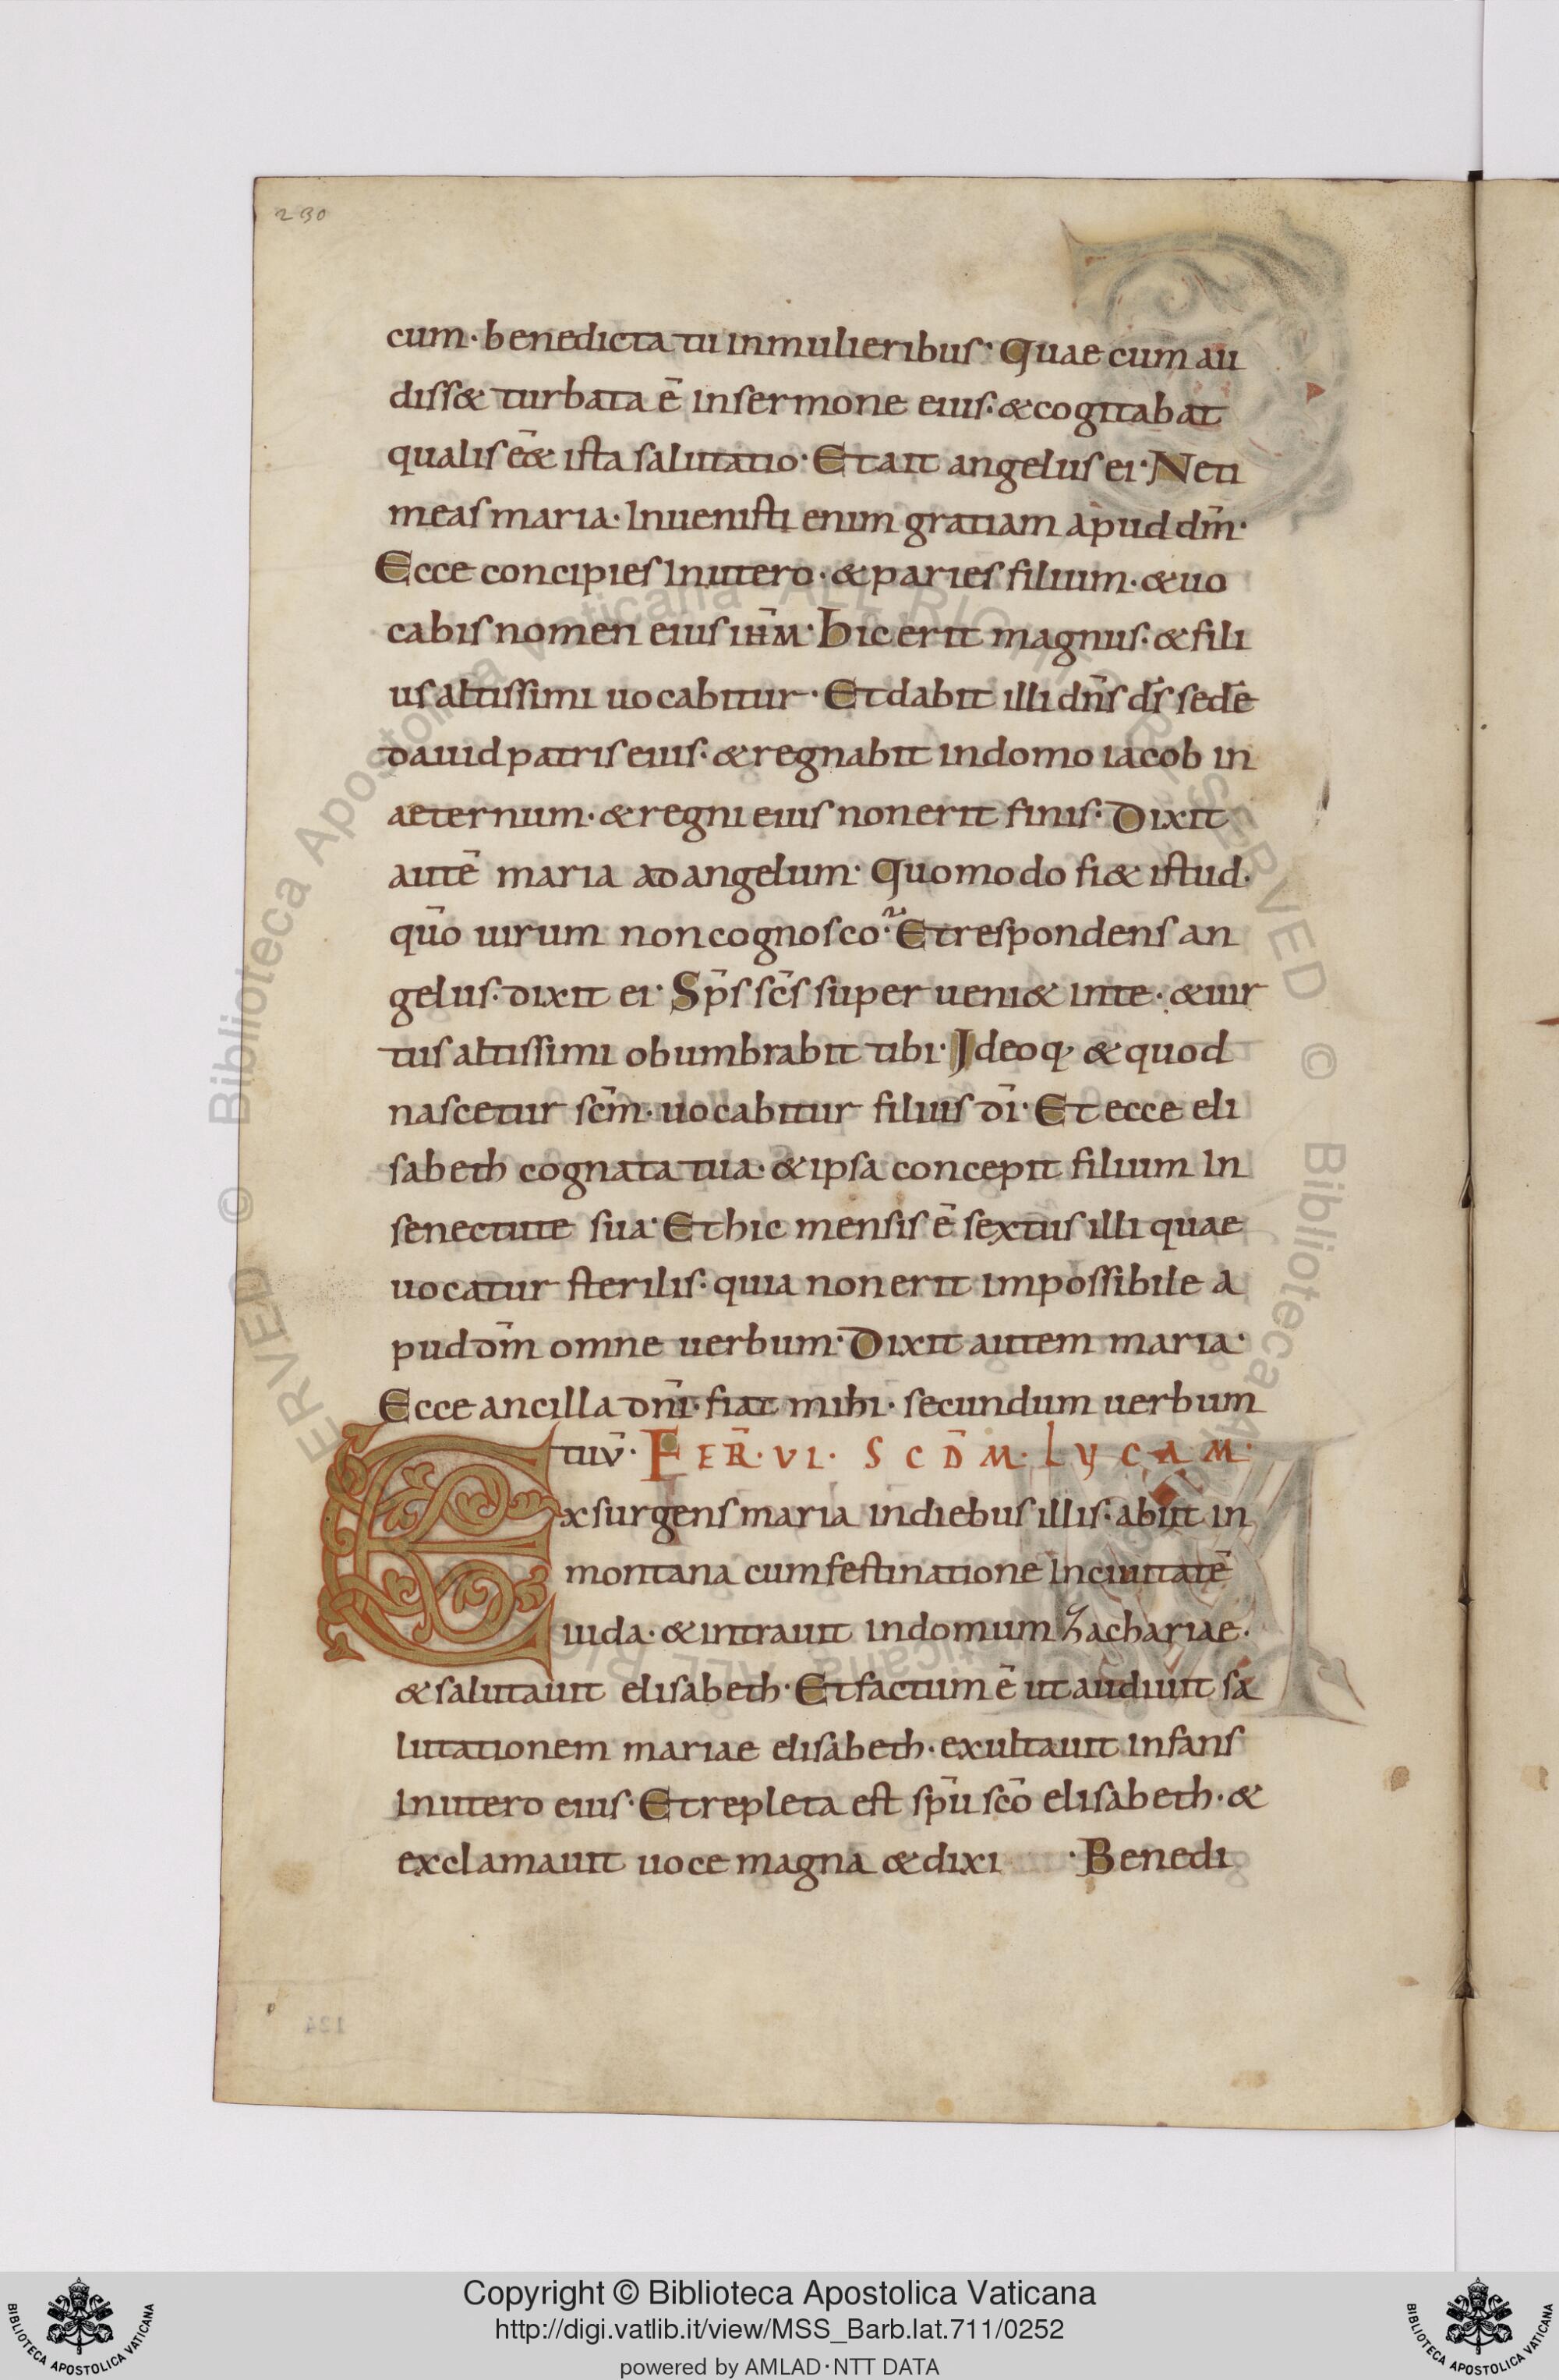 230
cum· benedicta tu inmulieribus· Quae cum au
diss& turbata ē insermone eius· & cogitabat
qualis eē& ista salutatio· Et ait angelus ei· Neti
meas maria· Inuenisti enim gratiam apud dm̄·
Ecce concipies Inutero· & paries filium· & uo
cabis nomen eius ihm̄· hic erit magnus· & fili
us altissimi uocabitur· Et dabit illi dn̄s ds̄ sedē
dauid patris eius· & regnabit indomo iacob in
aeternum· & regni eius non erit finis· Dixit
autē maria ad angelum· Quomodo fi& istud·
qūo uirum non cognosco· Et respondens an
gelus· dixit ei· Sp̄s sc̄s super ueni& inte· & uir
tus altissimi obumbrabit tibi· Ideoq· & quod
nascetur sc̄m· uocabitur filius dī· Et ecce eli
sabeth cognata tua· & ipsa concepit filium In
senectute sua· Et hic mensis ē sextus illi quae
uocatur sterilis· quia non erit impossibile a
pud dm̄ omne uerbum· Dixit autem maria·
Ecce ancilla dn̄i· fiat mihi· secundum uerbum
tuū· FER̄· VI· SCD̄M· LYCAM·
Exsurgens maria indiebus illis· abiit in
montana cum festinatione Inciuitatē
iuda· & intrauit indomum Zachariae·
& salutauit elisabeth· Et factum ē ut audiuit sa
lutationem mariae elisabeth· exultauit infans
Inutero eius· Et repleta est sp̄u sc̄o elisabeth· &
exclamauit uoce magna & dixi ·Benedi
124
© Biblioteca Apostolica Vaticana ALL RIGHTS RESERVED
Copyright © Biblioteca Apostolica Vaticana
http://digi.vatlib.it/view/MSS_Barb.lat.711/0252
powered by AMLAD·NTT DATA
BIBLIOTECA APOSTOLICA VATICANA
BIBLIOTECA APOSTOLICA VATICANA